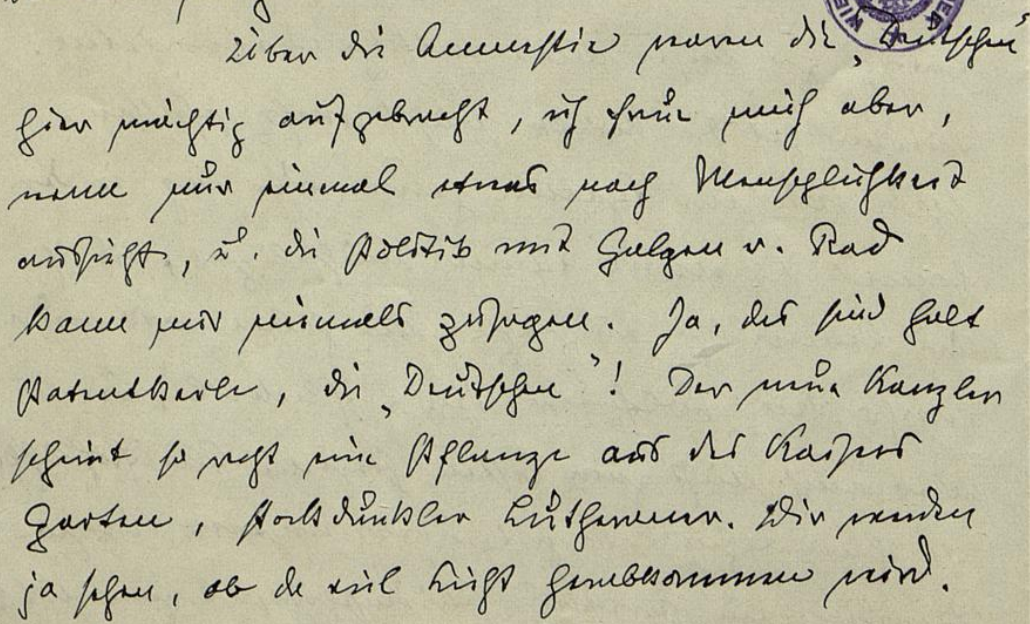 Über die Amnestie waren die „Deutschen“
hier mächtig aufgebracht, ich freue mich aber,
wenn nur einmal etwas nach Menschlichkeit
aussieht, u. die Politik mit Galgen u. Rad
kann mir niemals zusagen. Ja, das sind halt
Patentkerle, die „Deutschen“! Der neue Kanzler
scheint so recht eine Pflanze aus des Kaisers
Garten, stockdunkler Lutheraner. Wir werden
ja sehen, ob da viel Licht herabkommen wird.